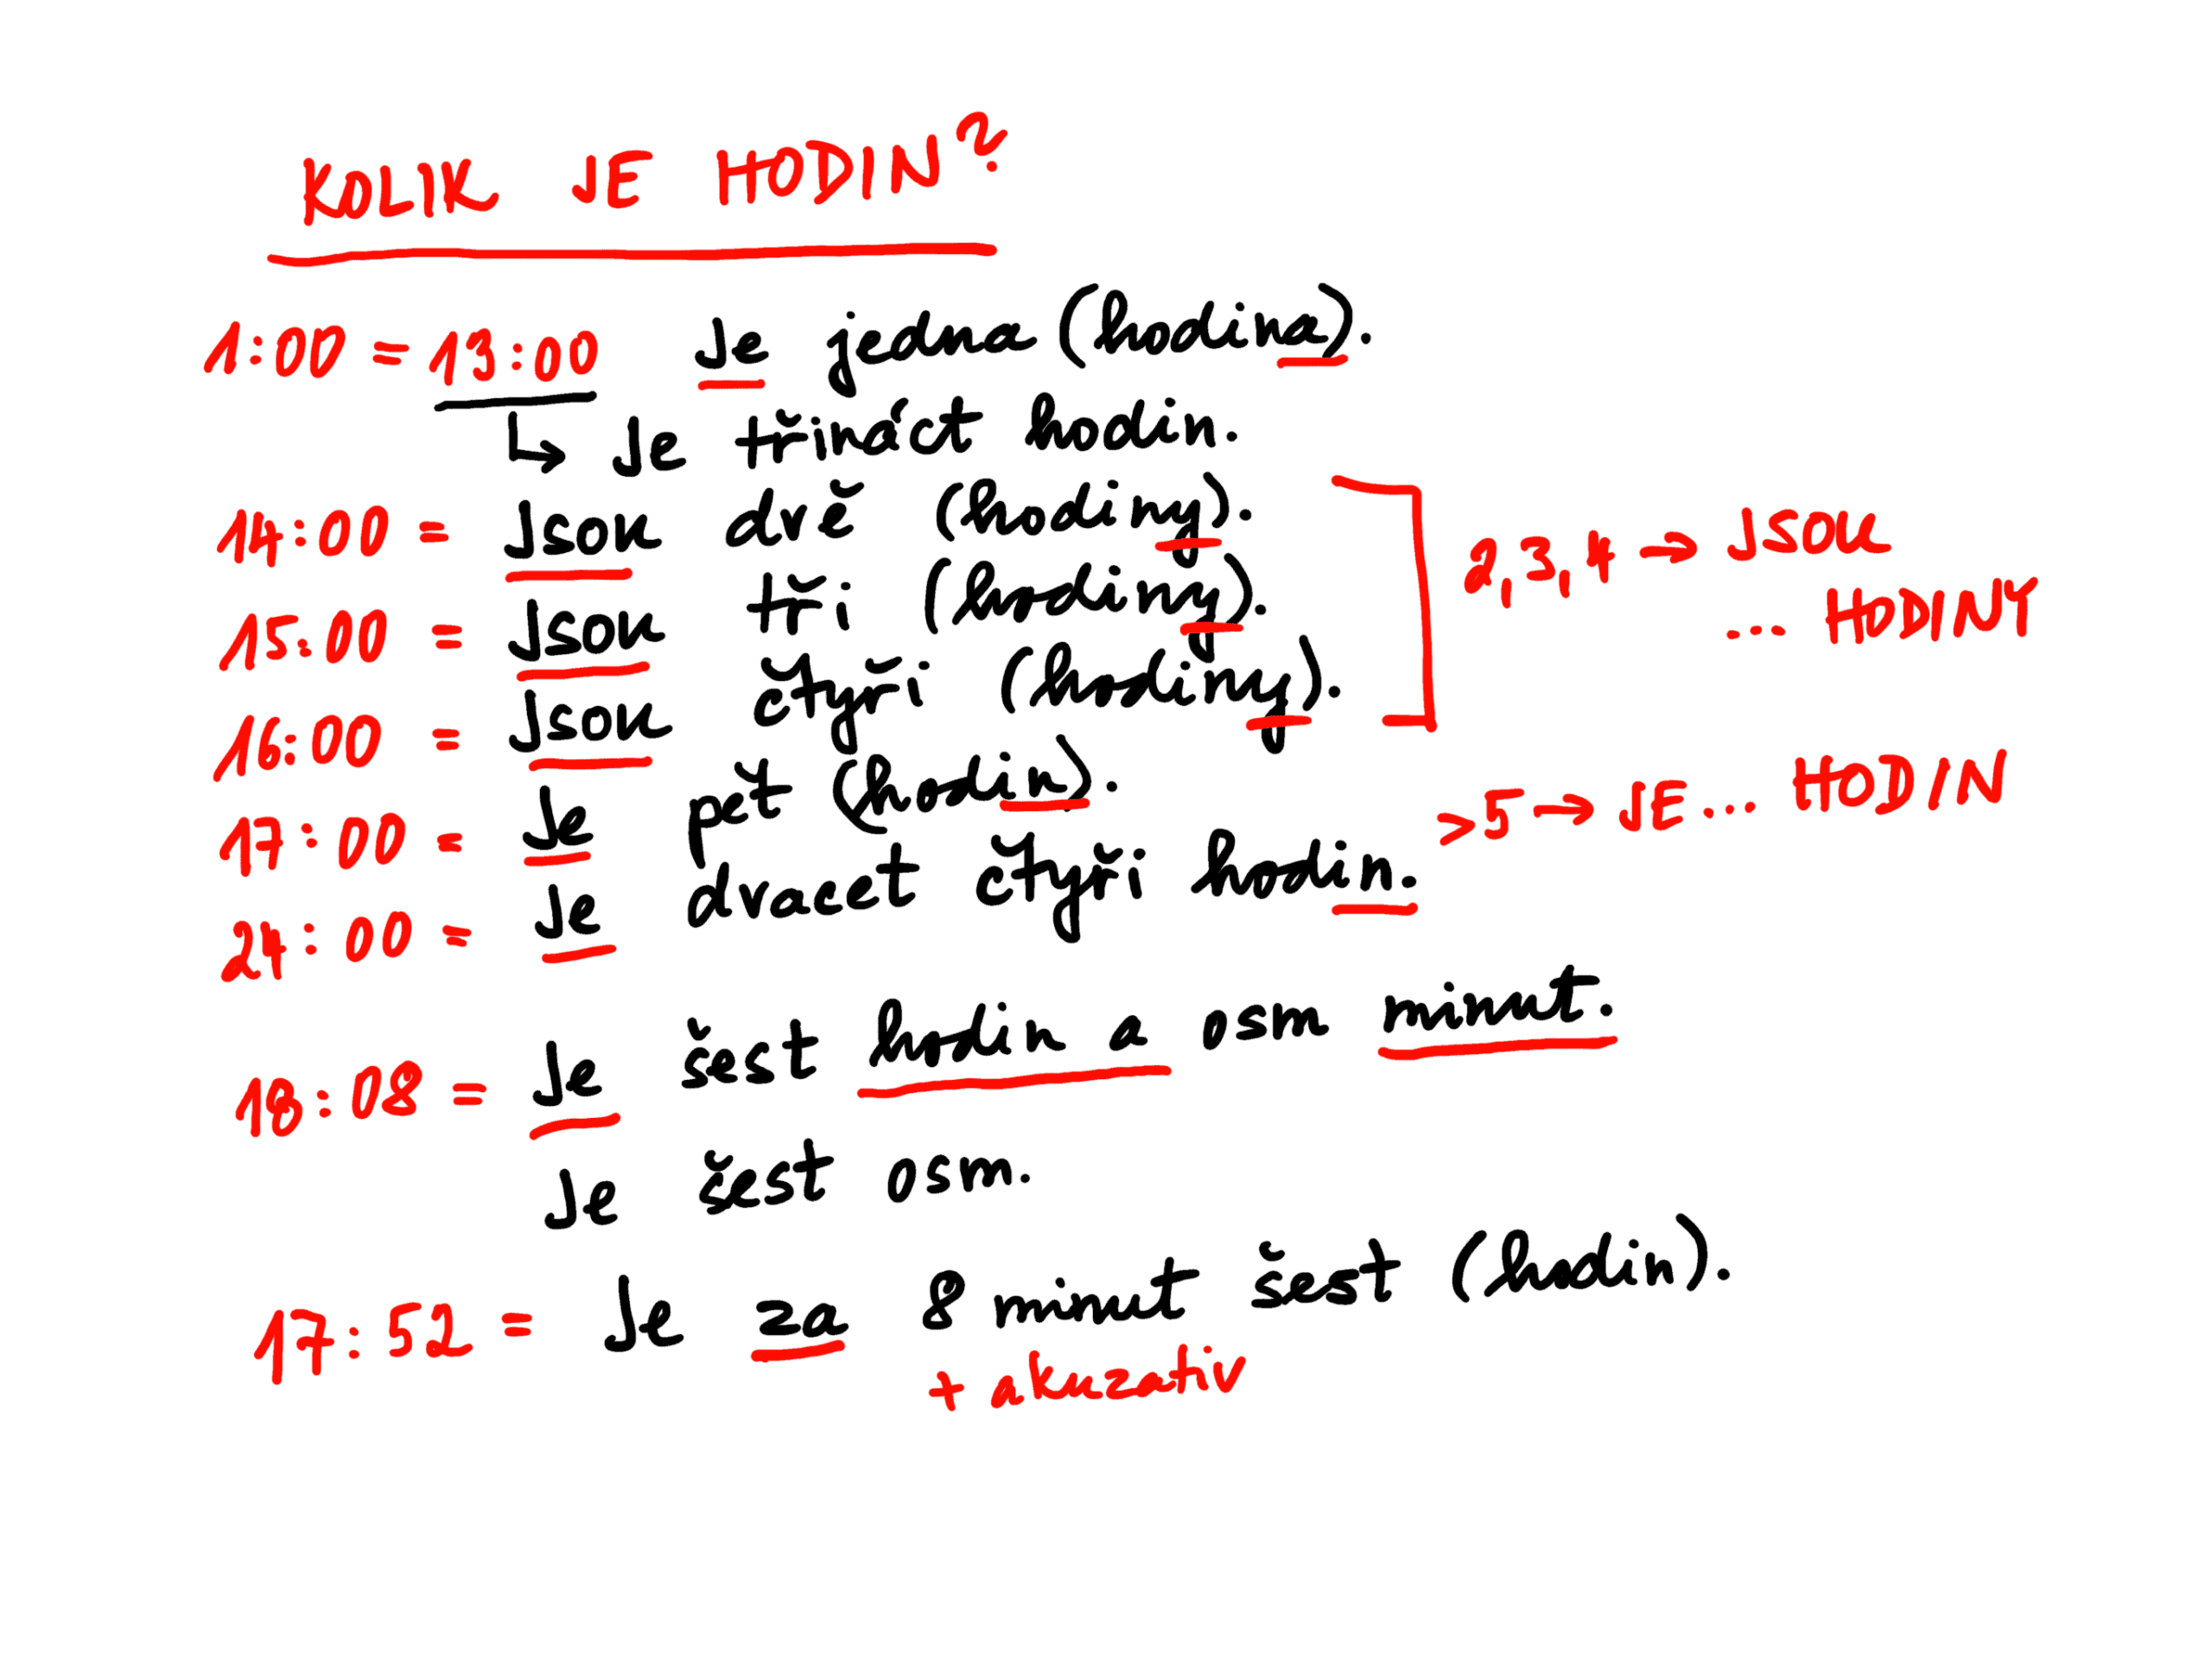 KOLIK JE HODIN?
1:00 = 13:00 Je jedna (hodina).
↳ Je třináct hodin.
14:00 = Jsou dvě (hodiny).
15:00 = Jsou tři (hodiny).
16:00 = Jsou čtyři (hodiny).
2,3,4 → JSOU
... HODINY
17:00 = Je pět (hodin).
>5 → JE ... HODIN
24:00 = Je dvacet čtyři hodin.
18:08 = Je šest hodin a osm minut.
Je šest osm.
17:52 = Je za 8 minut šest (hodin).
+ akuzativ